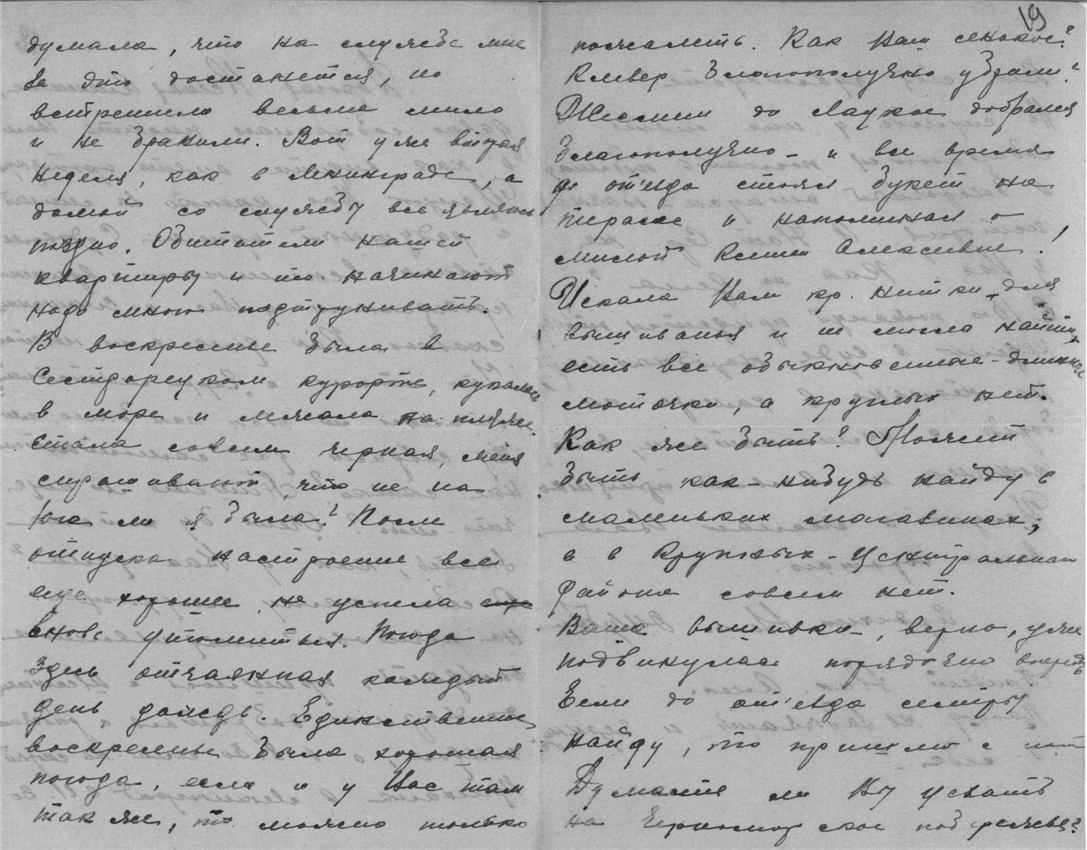 думала, что на службе мне
за это достанется, но
встретили весьма мило
и не бранили. Вот уже вторая
неделя, как в Ленинграде, а
домой со службы все являюсь
поздно. Обитатели нашей
квартиры и то начинают
надо мною подтрунивать.
В воскресенье была в
Сестрорецком курорте, купалась
в море и лежала на пляже
стала совсем черная, меня
спрашивают, что не на
юге ли я была? После
отпуска настроение все
еще хорошее, не успела еще
вновь утомиться. Погода
здесь отчаянная каждый
день дождь. Единственное
воскресенье была хорошая
погода, если и у Вас там
так же, то можно только
19
пожалеть. Как Ваш сенокос?
Клевер благополучно убрали?
до Лауки добрались
благополучно - и все время
до от'езда стоял букет на
терасе и напоминал о
милой Алексеевне!
Искала Вам кр. нитки для
вышиванья и не могла найти,
есть все обыкновенные - длинные
моточки, а круглых нет.
Как же быть? Может
быть как-нибудь найду в
маленьких магазинах,
а в крупных - центральном
районе совсем нет.
Ваша вышивка, верно, уже
подвинулась порядочно вперед
Если до от'езда сестры
найду, то пришлю с ней
Думаете ли Вы уехать
на Черноморское побережье?